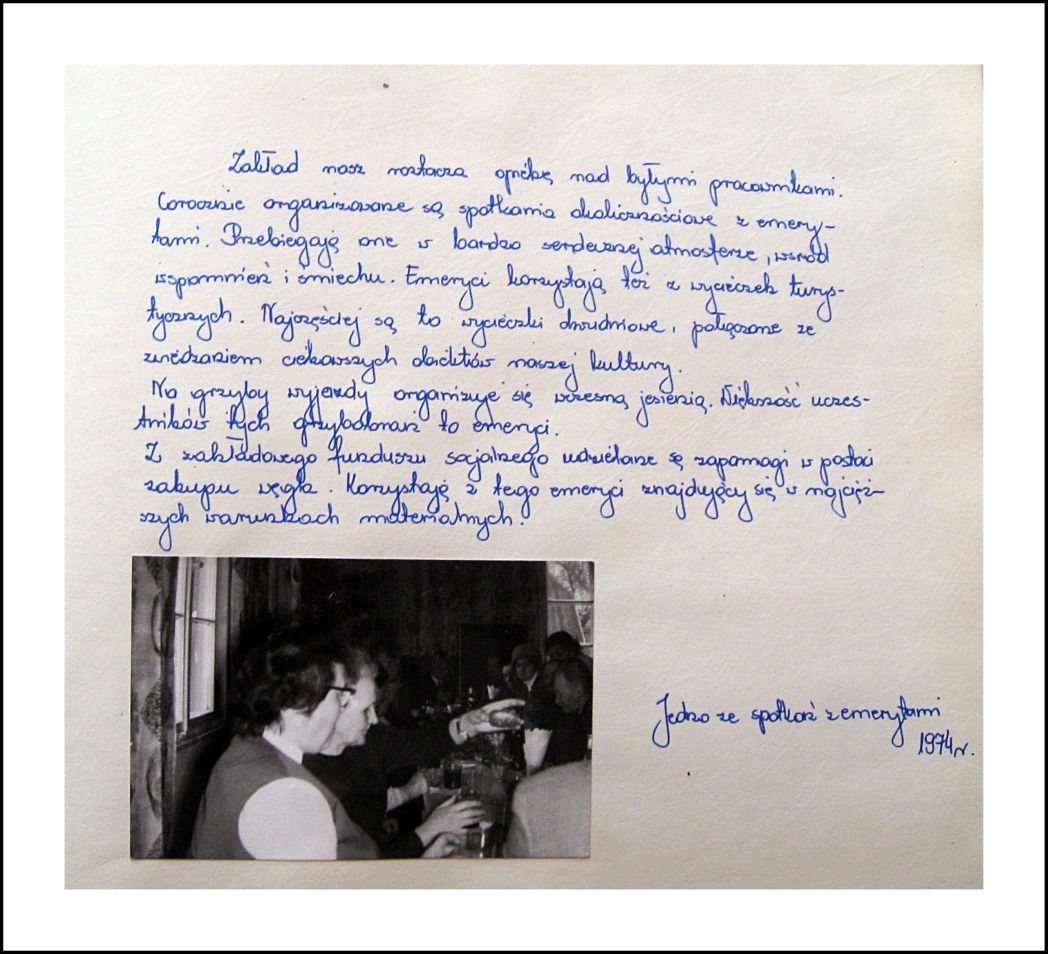 Zakład nasz roztacza opiekę nad byłymi pracownikami.
Corocznie organizowane są spotkania okolicznościowe z emery-
tami. Przebiegają one w bardzo serdecznej atmosferze, wśród
wspomnień i śmiechu. Emeryci korzystają też z wycieczek turys-
tycznych. Najczęściej są to wycieczki dwudniowe, połączone ze
zwiedzaniem ciekawszych obiektów naszej kultury.
Na grzyby wyjazdy organizuje się wczesną jesienią. Większość uczes-
tników tych grzybobrań to emeryci.
Z zakładowego funduszu socjalnego udzielane są zapomogi w postaci
zakupu węgla. Korzystają z tego emeryci znajdujący się w najcięż-
szych warunkach materialnych.
Jedno ze spotkań z emerytami
1974 r.